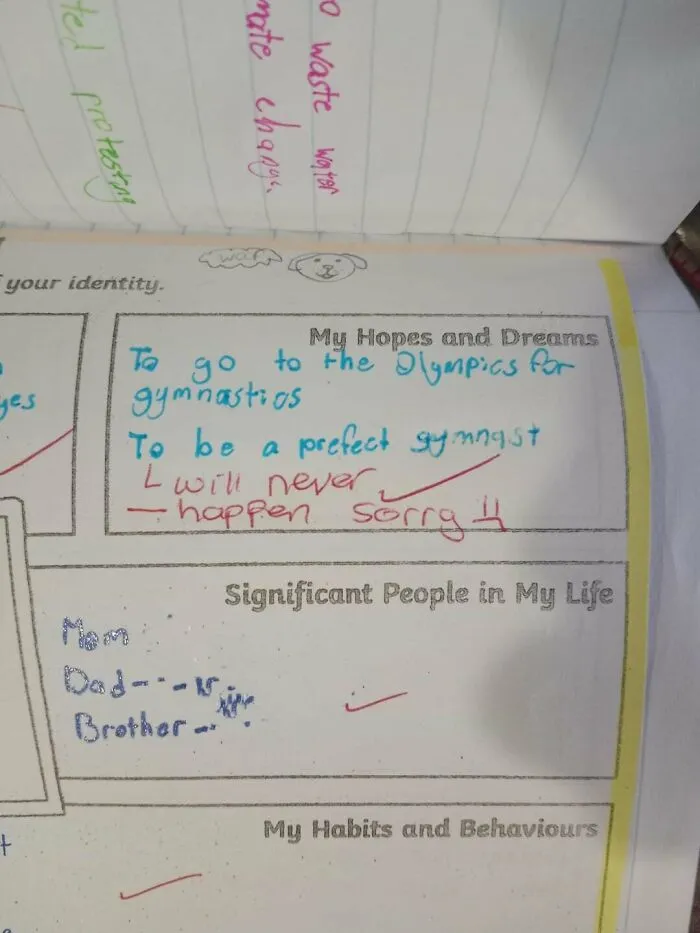 o waste water
mate change.
ted protesting
your identity.
war
My Hopes and Dreams
To go to the Olympics for
gymnastics
To be a prefect gymnast
will never
happen sorry
yes
Significant People in My Life
Mom
Dad
Brother
My Habits and Behaviours